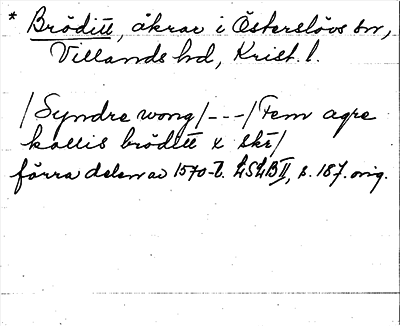 * Bröditt, åkrar i Österslövs sn,
Villands hd, Krist. l.
/Syndre wong/---/Fem agre
kallis bröditt x skr/
förra delen av 1570-t. LSLB II, s. 187. orig.